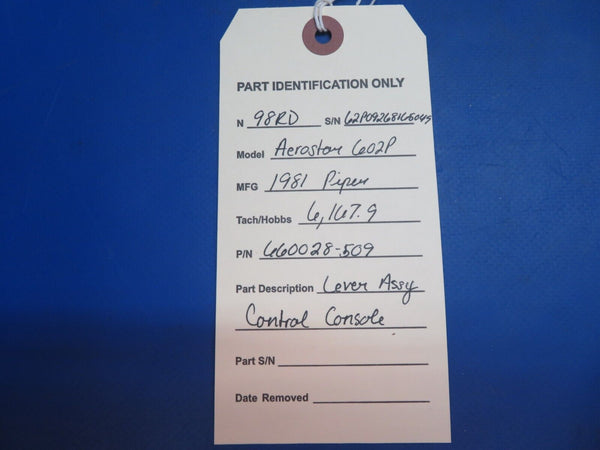 PART IDENTIFICATION ONLY
N 98RD S/N
Model Aerostar 602P
MFG 1981 Piper
Tach/Hobbs 6,167.9
P/N 660028-509
Part Description Lever Assy
Control Console
Part S/N
Date Removed